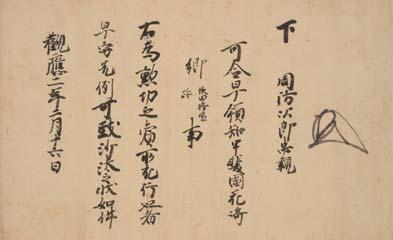 下 周防次郎忠親
可令早領知甲斐國花寄
郷 跡 事
右為勲功之賞所宛行也者
早守先例可致沙汰之状如件
觀應二年二月十六日